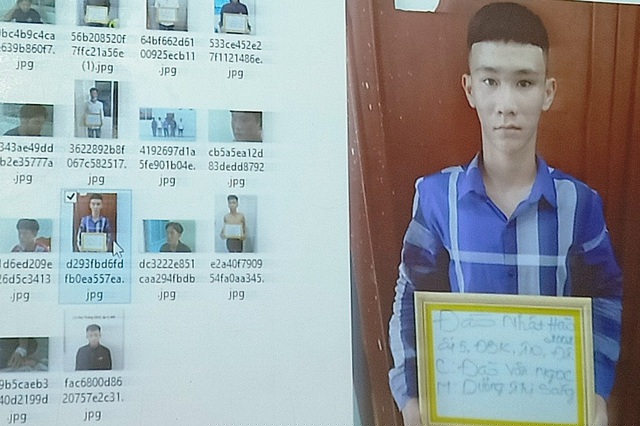 0bc4b9c4ca
e639b860f7.
.jpg
56b208520f
7ffc21a56e
(1).jpg
64bf662d61
00925ecb11
.jpg
533ce452e2
7f1121486e.
jpg
343ae49dd
b2e35777a
.jpg
3622892b8f
067c582517.
jpg
4192697d1a
5fe901b04e.
jpg
cb5a5ea12d
83dedd8792
.jpg
1d6ed209e
26d5c3413
.jpg
d293fbd6fd
fb0ea557ea.
jpg
dc3222e851
caa294fbdb
.jpg
e2a40f7909
54fa0aa345.
jpg
9b5caeb3
40d2199d
.jpg
fac6800d86
20757e2c31.
jpg
Đào Nhật Hào
C: Đào Văn Ngọc
M: Dương